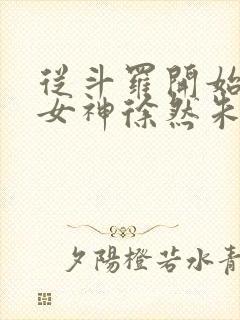 從斗羅開始
女神徐然朱
夕陽橙若水青